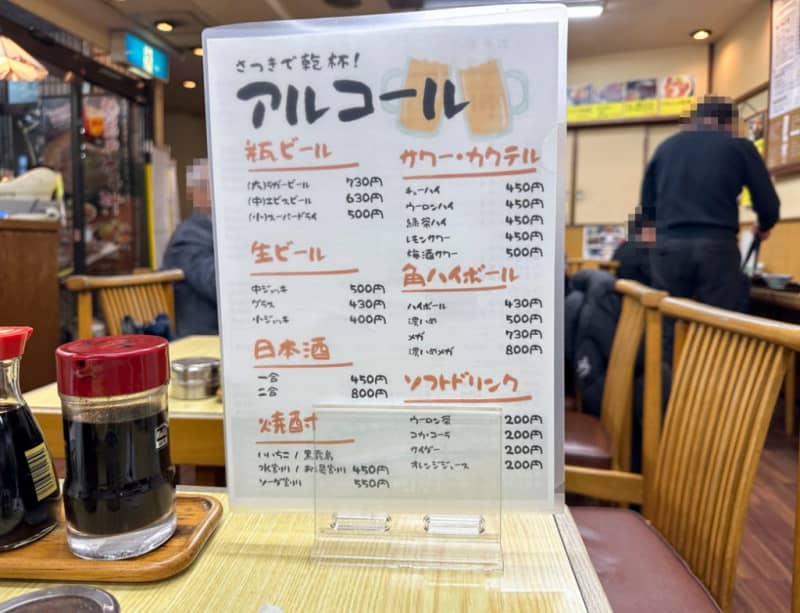 さつきで乾杯!
アルコール
瓶ビール
(大)ラガービール 730円
(中)エビスビール 630円
(小)スーパードライ 500円
生ビール
中ジョッキ 500円
グラス 430円
小ジョッキ 400円
日本酒
一合 450円
二合 800円
焼酎
いいちこ / 黒霧島
水割り / お湯割り 450円
ソーダ割り 550円
サワー・カクテル
チューハイ 450円
ウーロンハイ 450円
緑茶ハイ 450円
レモンサワー 450円
梅酒サワー 500円
角ハイボール
ハイボール 430円
濃いめ 500円
メガ 730円
濃いめメガ 800円
ソフトドリンク
ウーロン茶 200円
コカ・コーラ 200円
サイダー 200円
オレンジジュース 200円